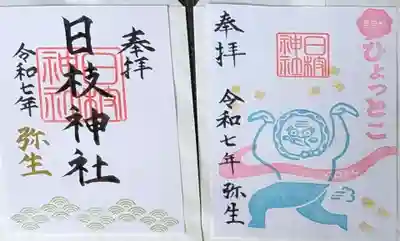 奉拝
日枝神社
日枝神社
令和七年
弥生
ひょっとこ
日枝神社
奉拝
令和七年 弥生